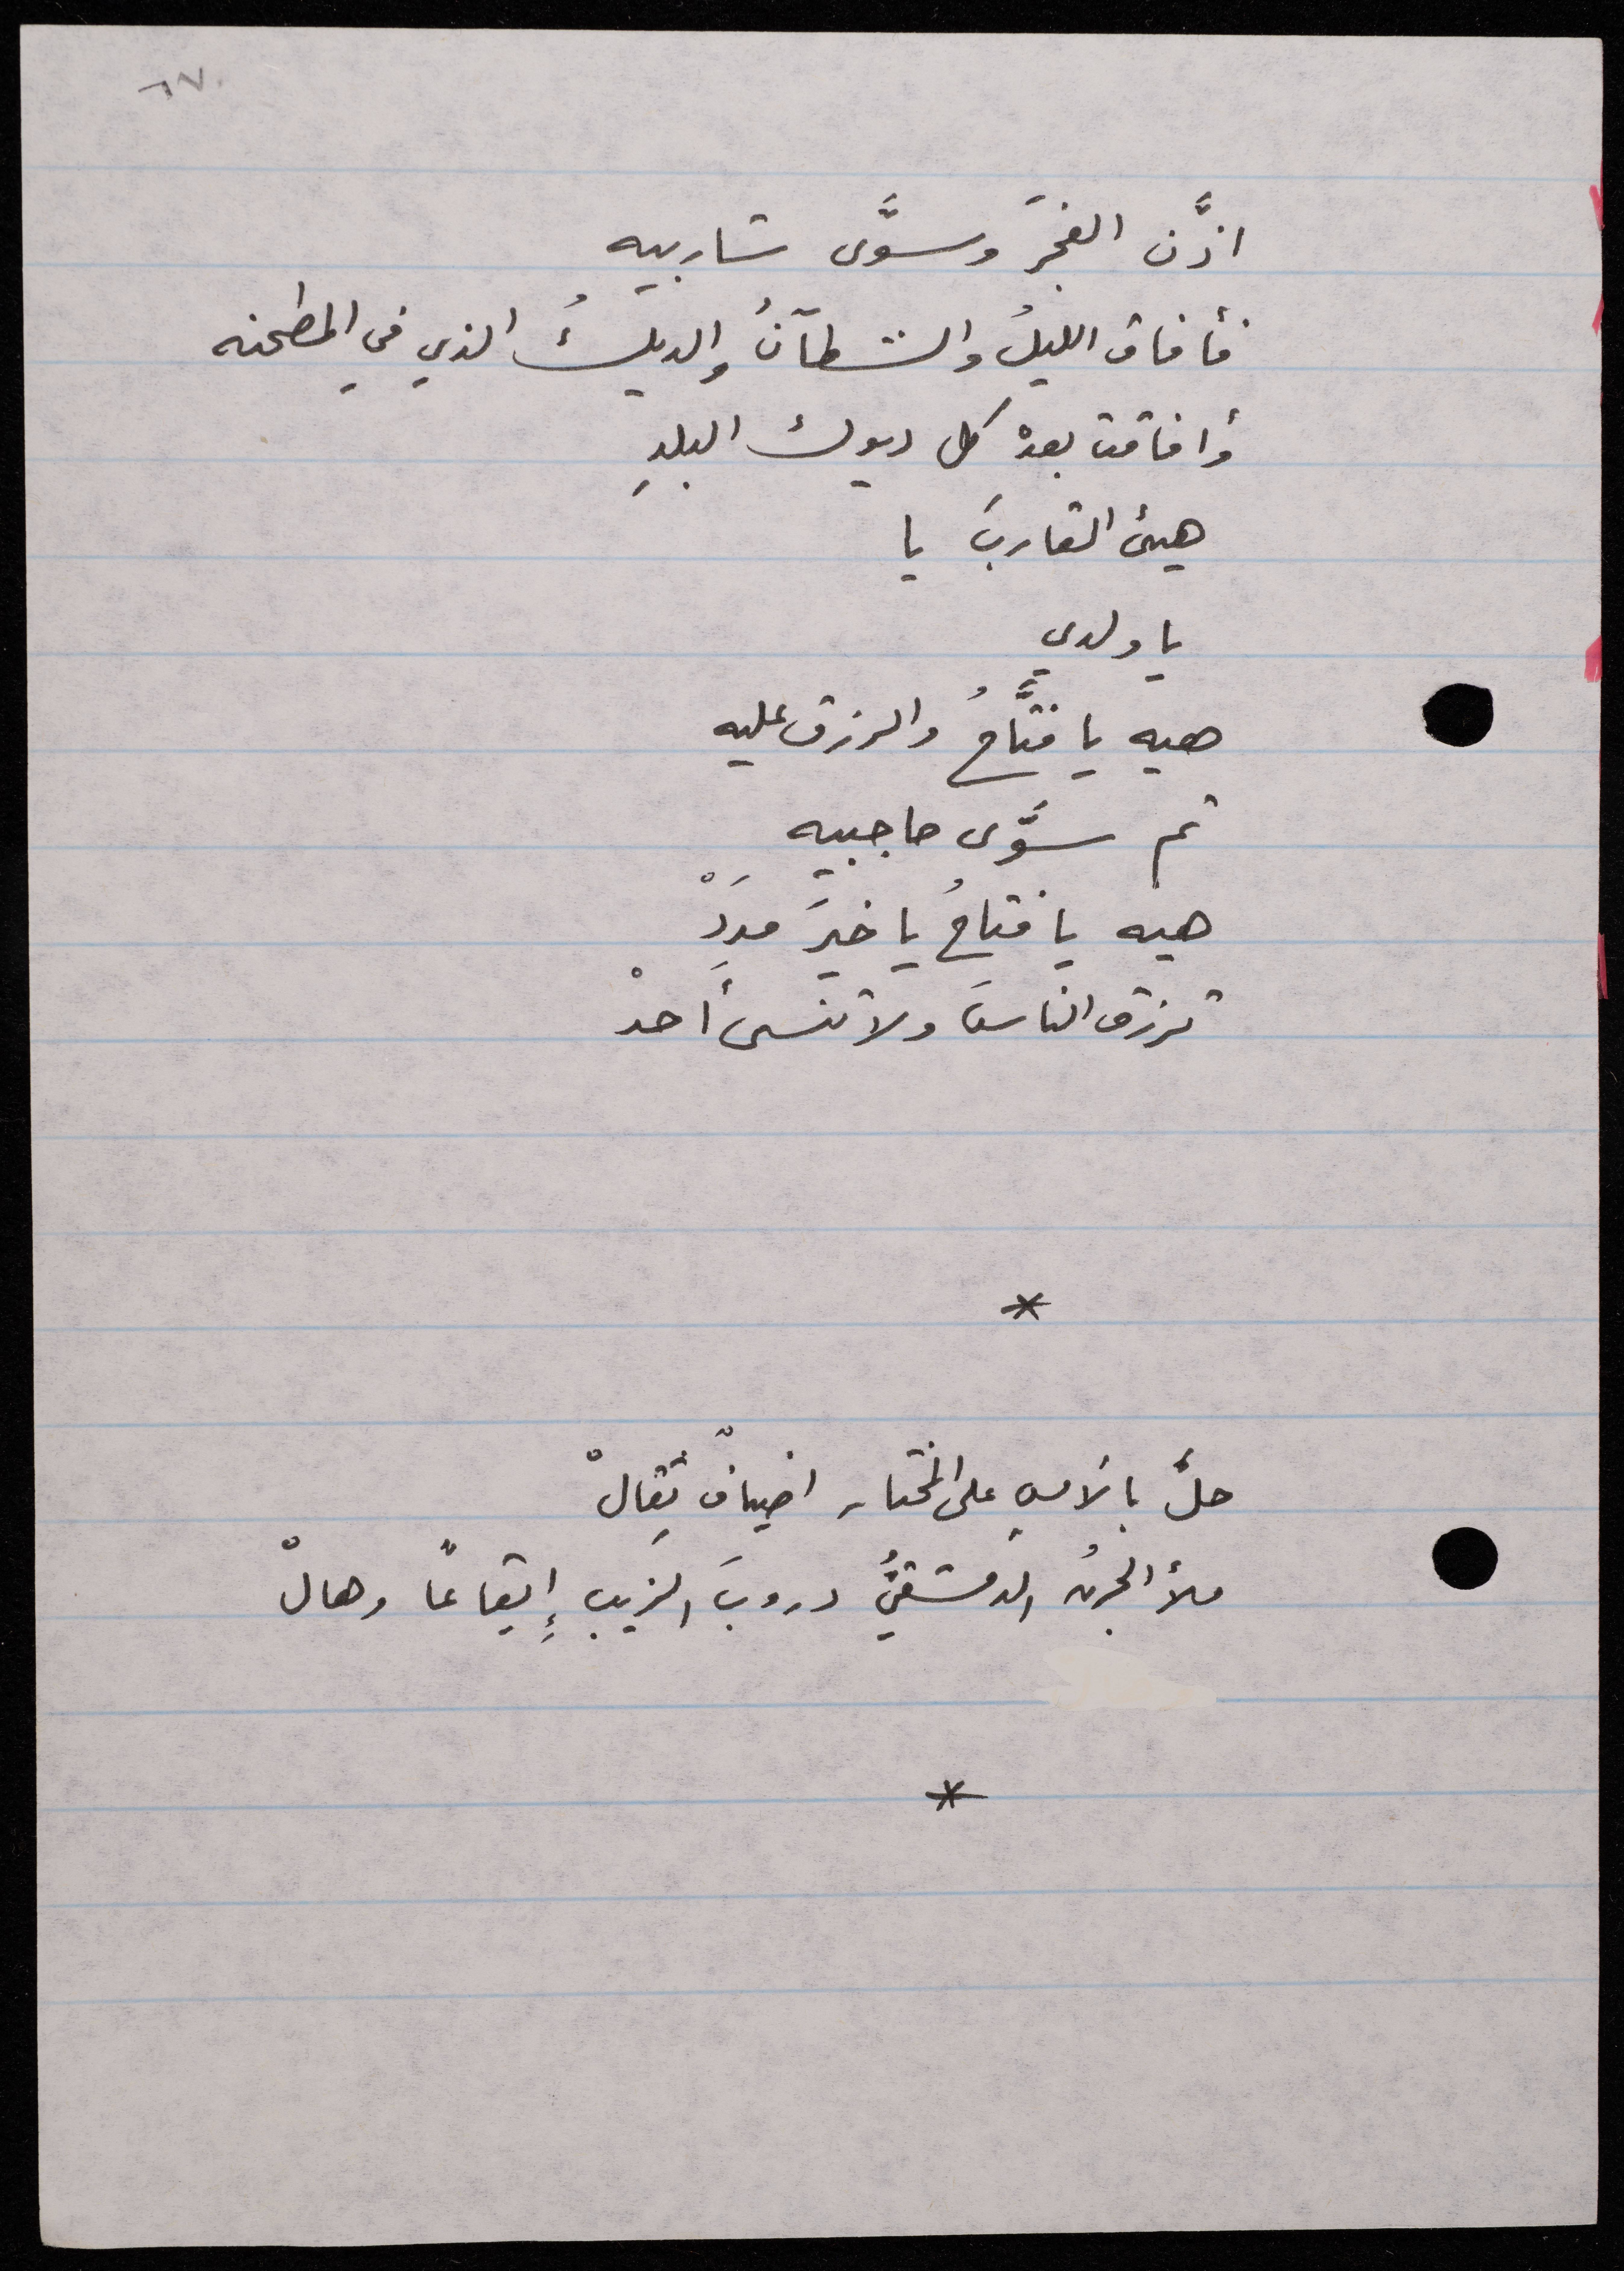 ٦٧.
اذَّن الفجرَ وسوَّى شاربيه
فأفاق الليلُ والشطآنُ والديكُ الذي في المطحنه
وأفاقت بعدْ كل ديوك البلدِ
هيئ القاربَ يا
يا ولدي
هيه يا فتَّاحُ والرزق عليه
ثم سوَّى حاجبيه
هيه يا فتاحُ يا خيرَ مددْ
ترزق الناسَ ولا تنسى أحدْ
*
حلَّ بالأمسِ على المختار اضيافٌ ثِقالْ
ملأ الجرنُ الدمشقيُّ دروبَ الزيبِ إيقاعًا وهالْ
*